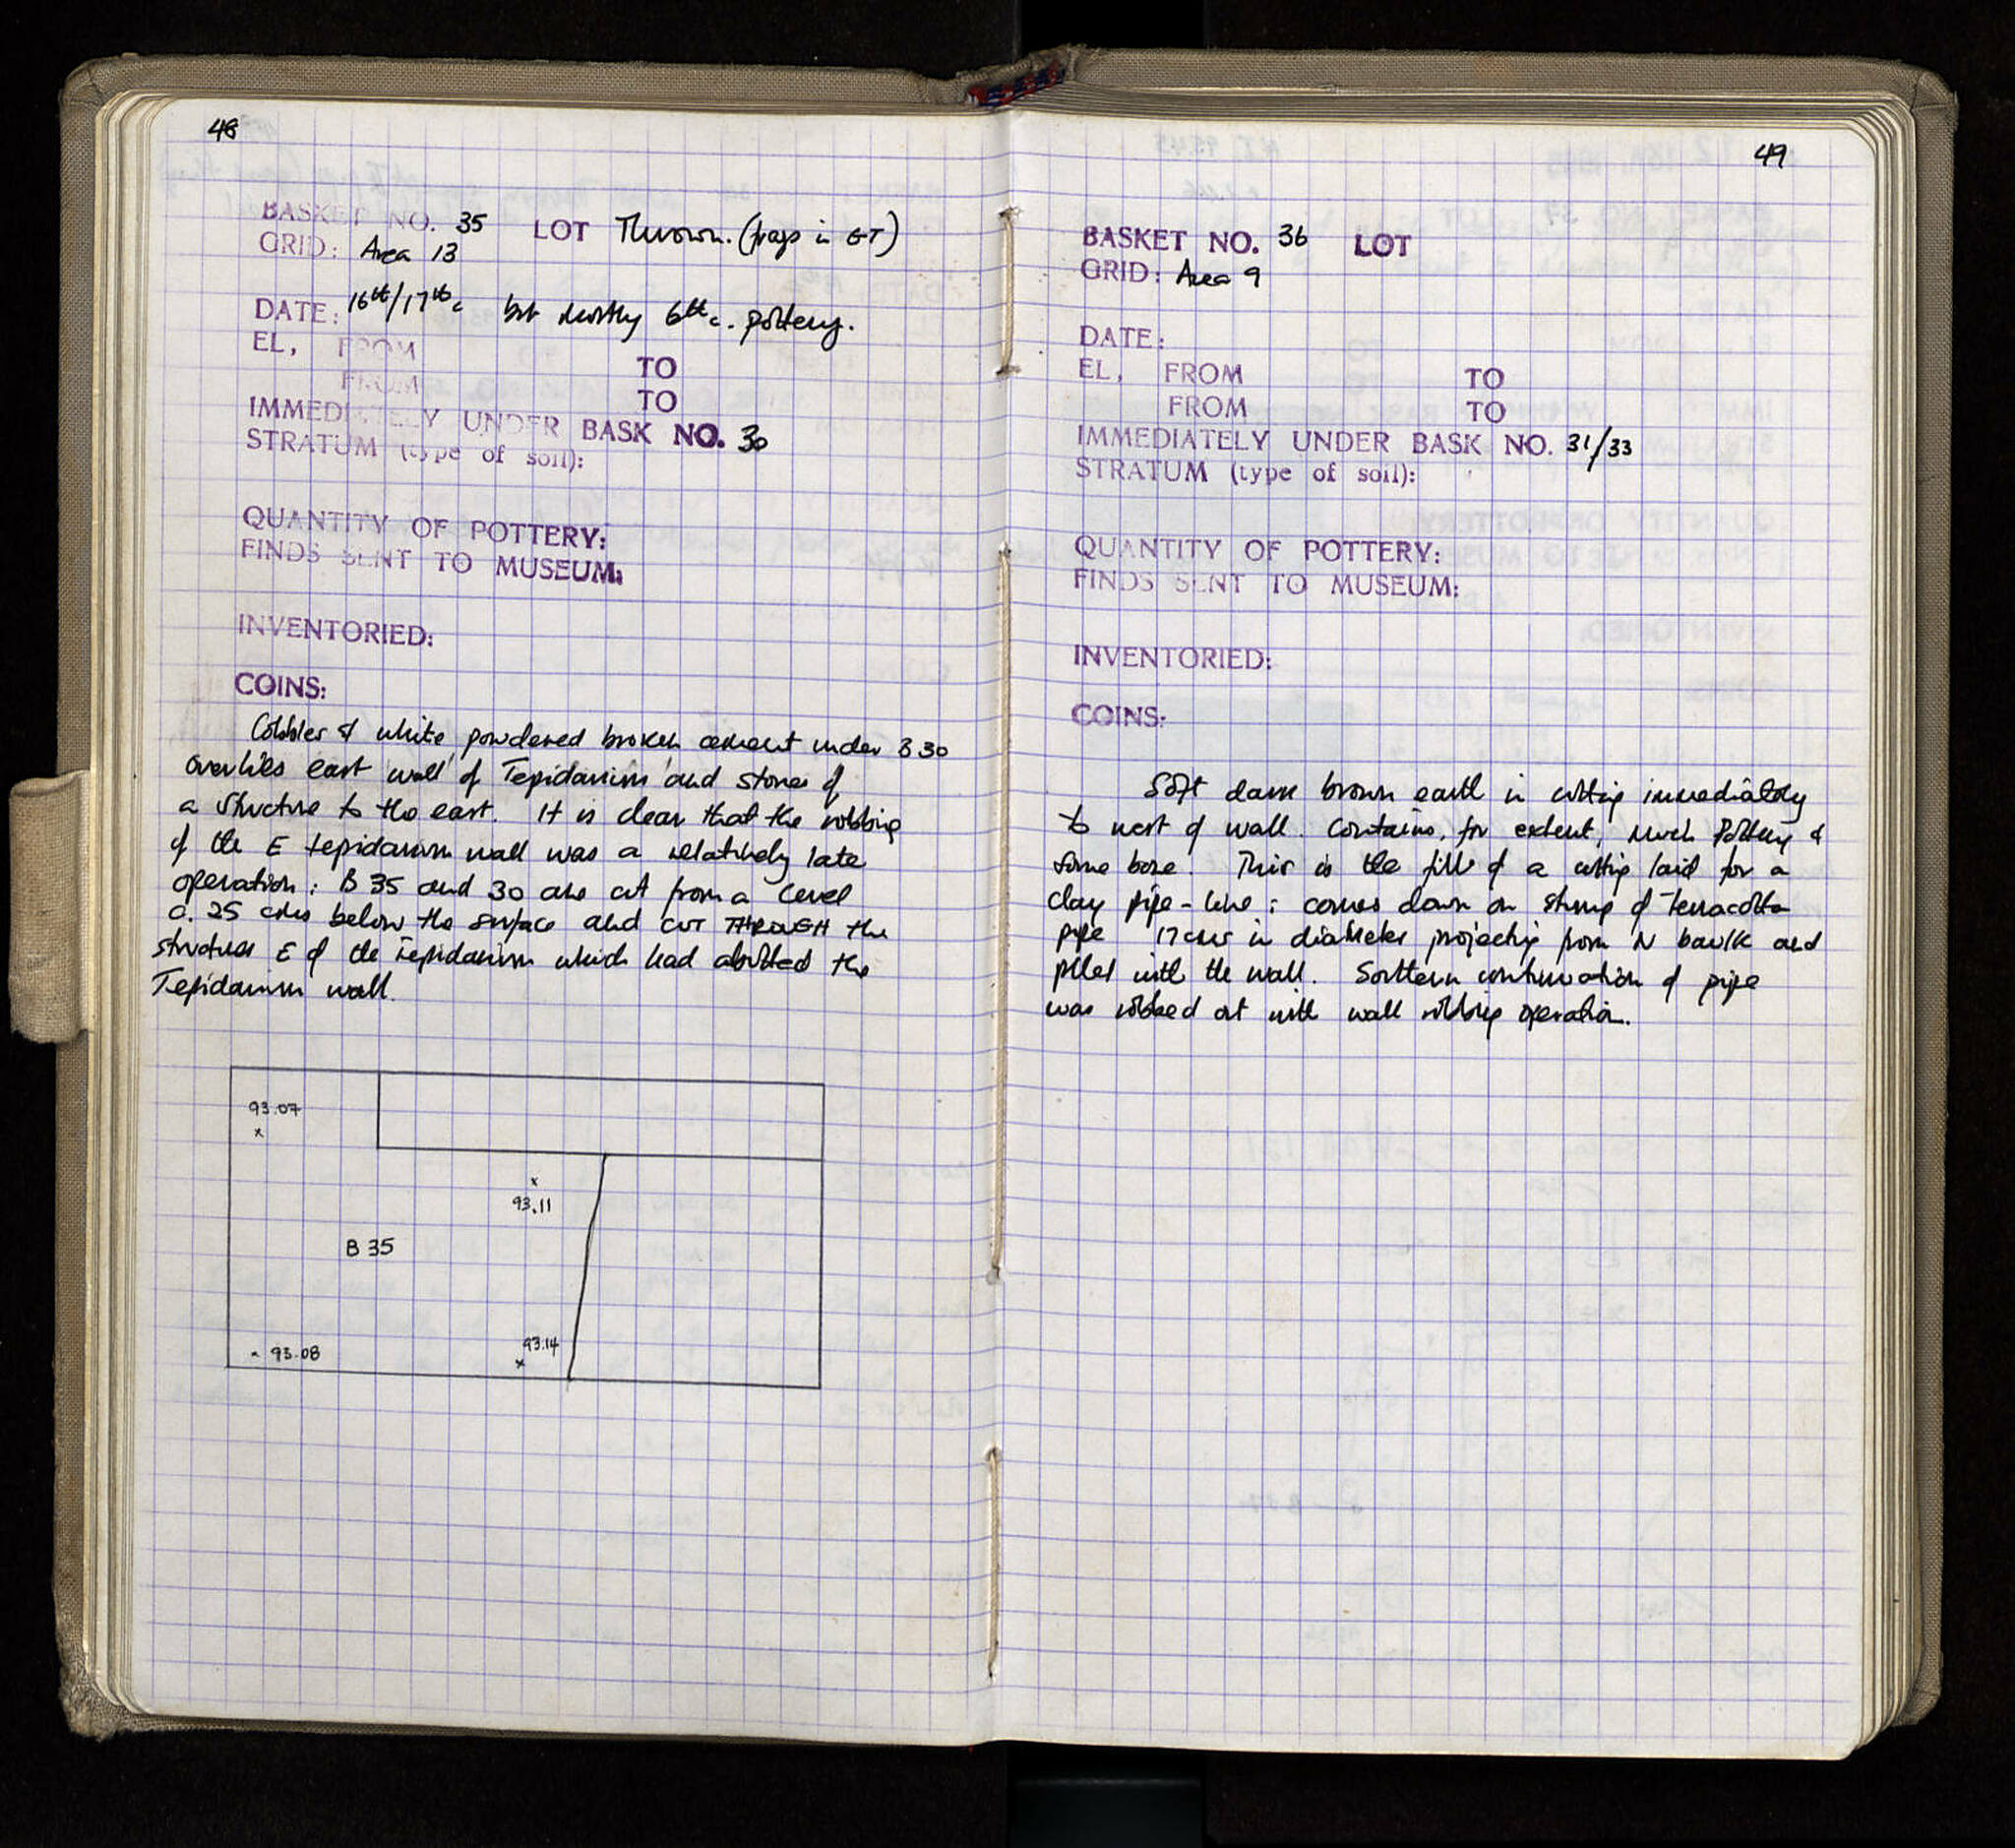 48
BASKET NO. 35 LOT Thrown. (frags in GT)
GRID: Area 13
DATE: 16th/17th c but mostly 6th c. pottery.
EL, FROM TO
FROM TO
IMMEDIATELY UNDER BASK NO. 30
STRATUM (type of soil):
QUANTITY OF POTTERY:
FINDS SENT TO MUSEUM:
INVENTORIED:
COINS:
Cobbles & white powdered broken cement under B 30
overlies east wall of Tepidarium and stones of
a structure to the east. It is clear that the robbing
of the E tepidarium wall was a relatively late
operation: B 35 and 30 are cut from a level
c. 25 cms below the surface and CUT THROUGH the
structures E of the Tepidarium which had abutted the
Tepidarium wall.
93.07
x
x
93.11
B 35
93.14
x
93.08
49
BASKET NO. 36 LOT
GRID: Area 9
DATE:
EL, FROM TO
FROM TO
IMMEDIATELY UNDER BASK NO. 31/33
STRATUM (type of soil):
QUANTITY OF POTTERY:
FINDS SENT TO MUSEUM:
INVENTORIED:
COINS:
Soft dark brown earth in cutting immediately
to west of wall. Contains, for extent, much Pottery &
some bone. This is the fill of a cutting laid for a
clay pipe-line: comes down on stump of terracotta
pipe 17 cms in diameter projecting from N baulk and
with the wall. Southern continuation of pipe
was robbed out with wall robbing operation.